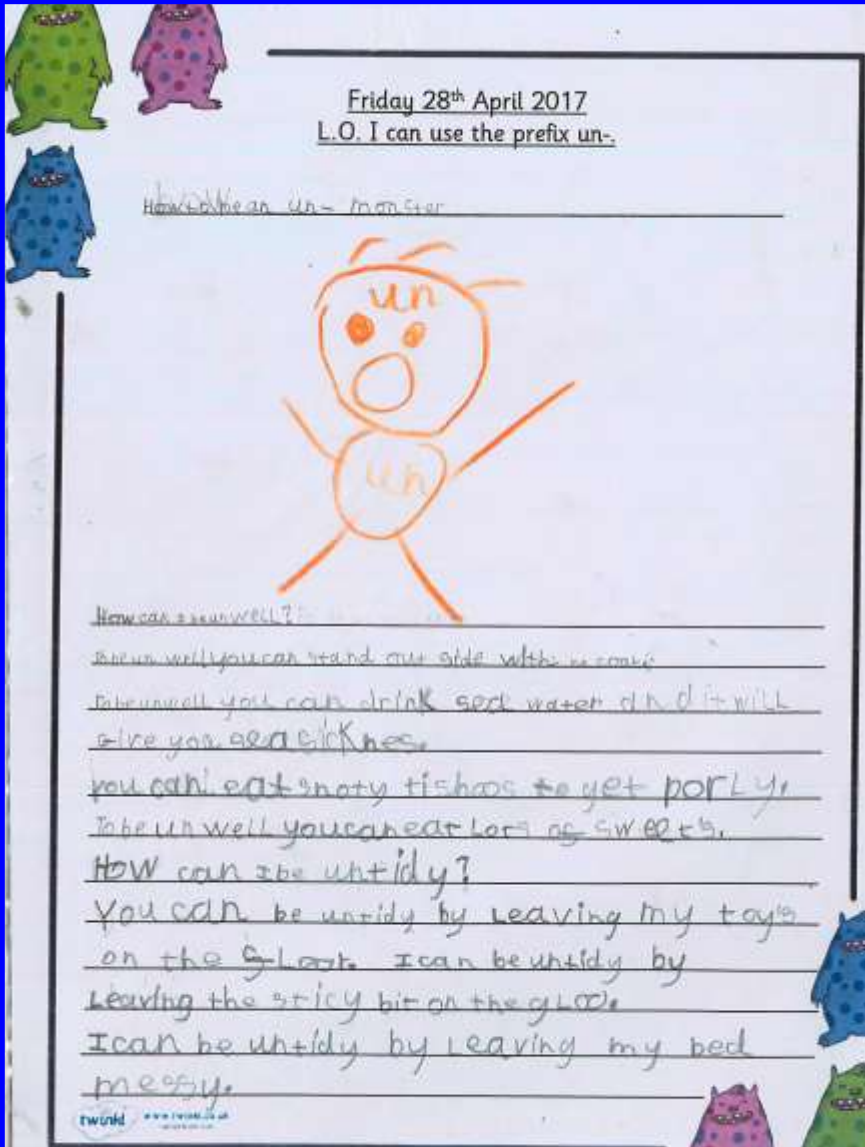 Friday 28th April 2017
L.O. I can use the prefix un-.
How to be an un- monster
un
un
How can I be unwell?
To be un well you can stand out side with no coat.
To be unwell you can drink sea water and it will
give you sea sicknes.
you can eat snoty tishoos to get porly.
To be un well you can eat Lots of sweets.
How can I be untidy?
You can be untidy by Leaving my toy's
on the floor. I can be untidy by
Leaving the sticy bit on the gLoo.
I can be untidy by Leaving my bed
messy.
twinkl